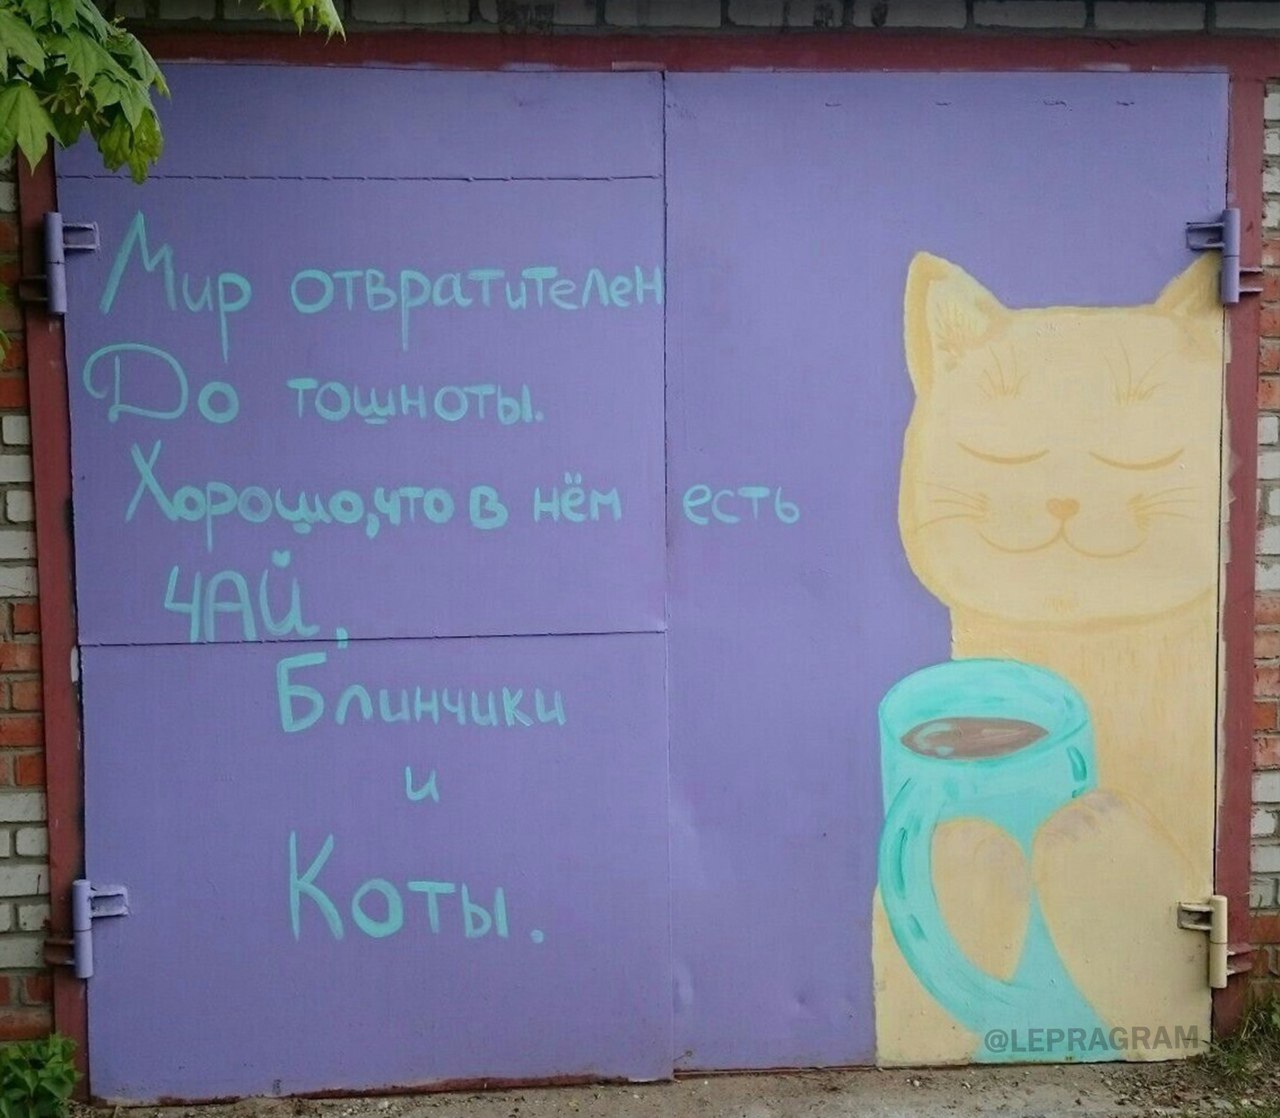 Мир отвратителен
До тошноты.
Хорошо, что в нём есть
ЧАЙ,
Блинчики
и
Коты.
@LEPRAGRAM